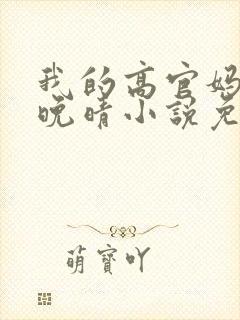 我的高官妈
晚晴小说免
萌寶吖